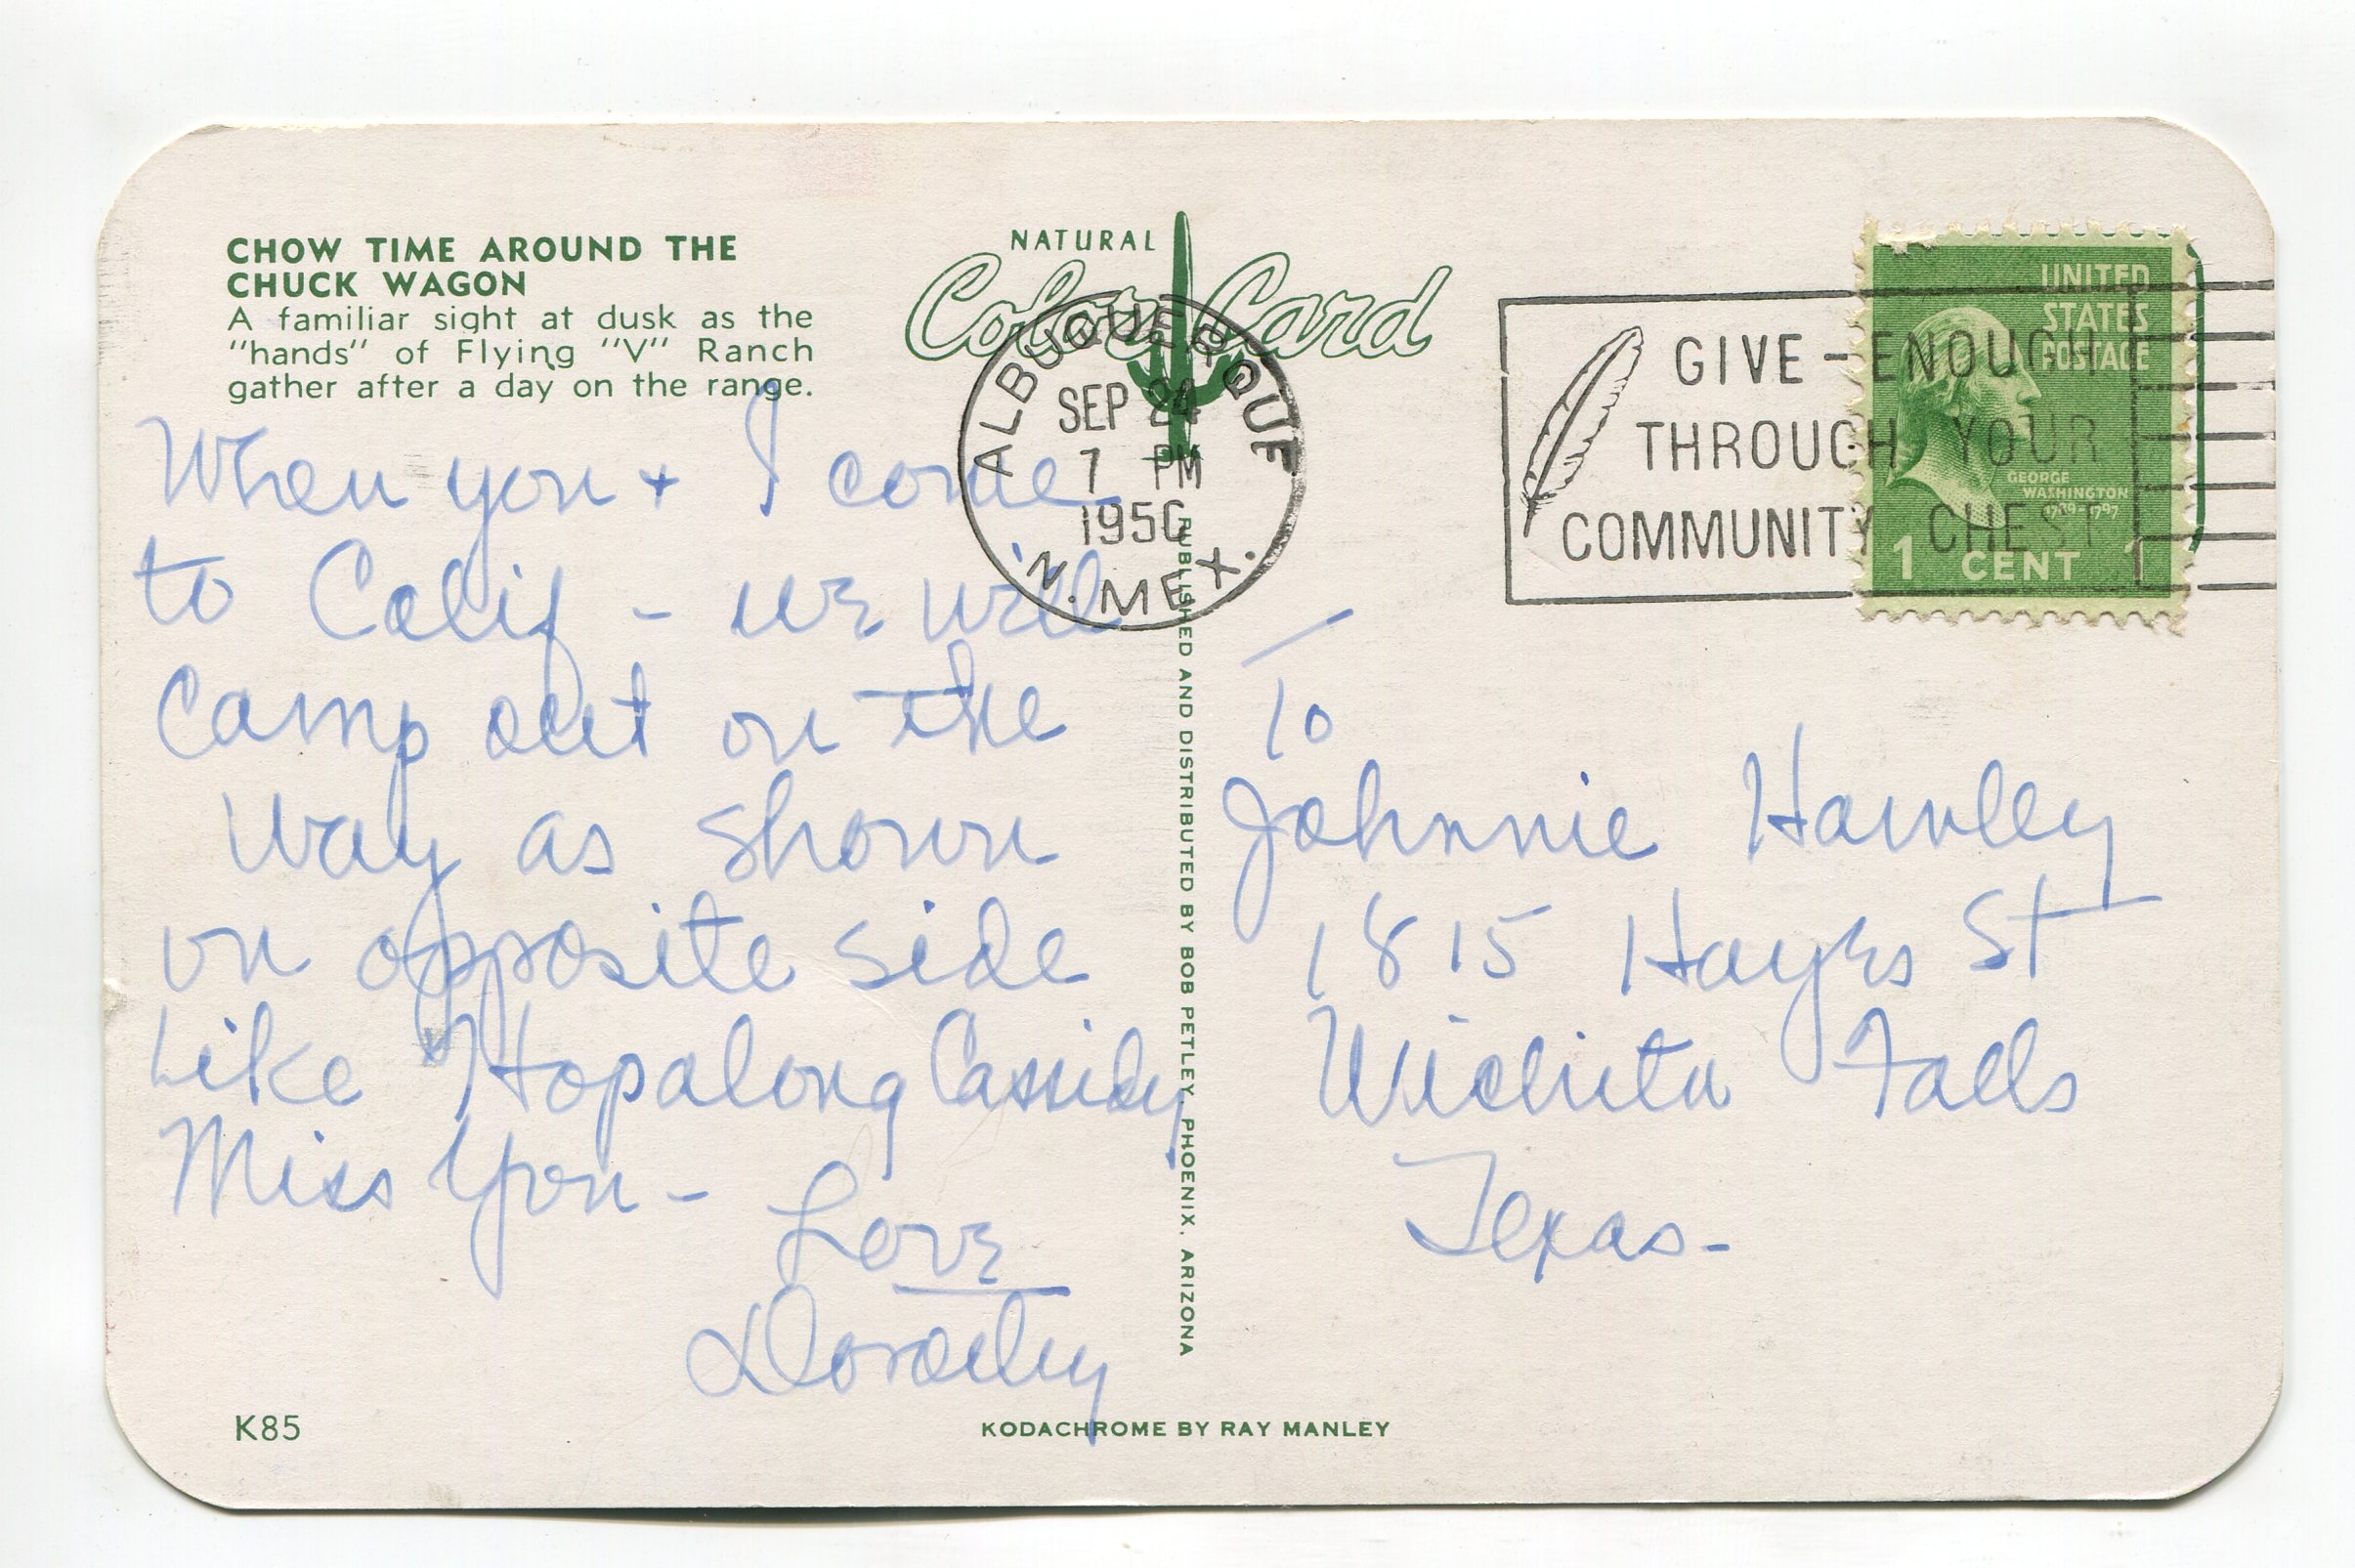 CHOW TIME AROUND THE
CHUCK WAGON
A familiar sight at dusk as the
"hands" of Flying "V" Ranch
gather after a day on the range.
When you + I come
to Calif - we will
camp out on the
way as shown
on opposite side
Like Hopalong Cassidy
Miss You -
Love
Dorothy
K85
NATURAL
Color Card
ALBUQUERQUE
SEP 24
7 PM
1950
N. MEX.
PUBLISHED AND DISTRIBUTED BY BOB PETLEY, PHOENIX, ARIZONA
KODACHROME BY RAY MANLEY
GIVE - ENOUGH
THROUGH YOUR
COMMUNITY CHEST
UNITED
STATES
POSTAGE
GEORGE
WASHINGTON
1789-1797
1 CENT 1
To
Johnnie Hawley
1815 Hayes St
Wichita Falls
Texas -